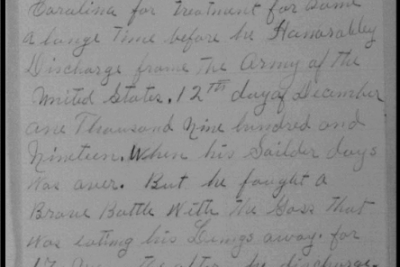 Carolina for treatment for some
a longe time before he Hanorabley
Discharge frome the Army of the
United States. 12TH day of December
one Thousand Nine hundred and
Nineteen. When his Soilder days
was over. But he fought a
Brave Battle With the Gass That
was eating his Lungs away. for
17 after he discharge